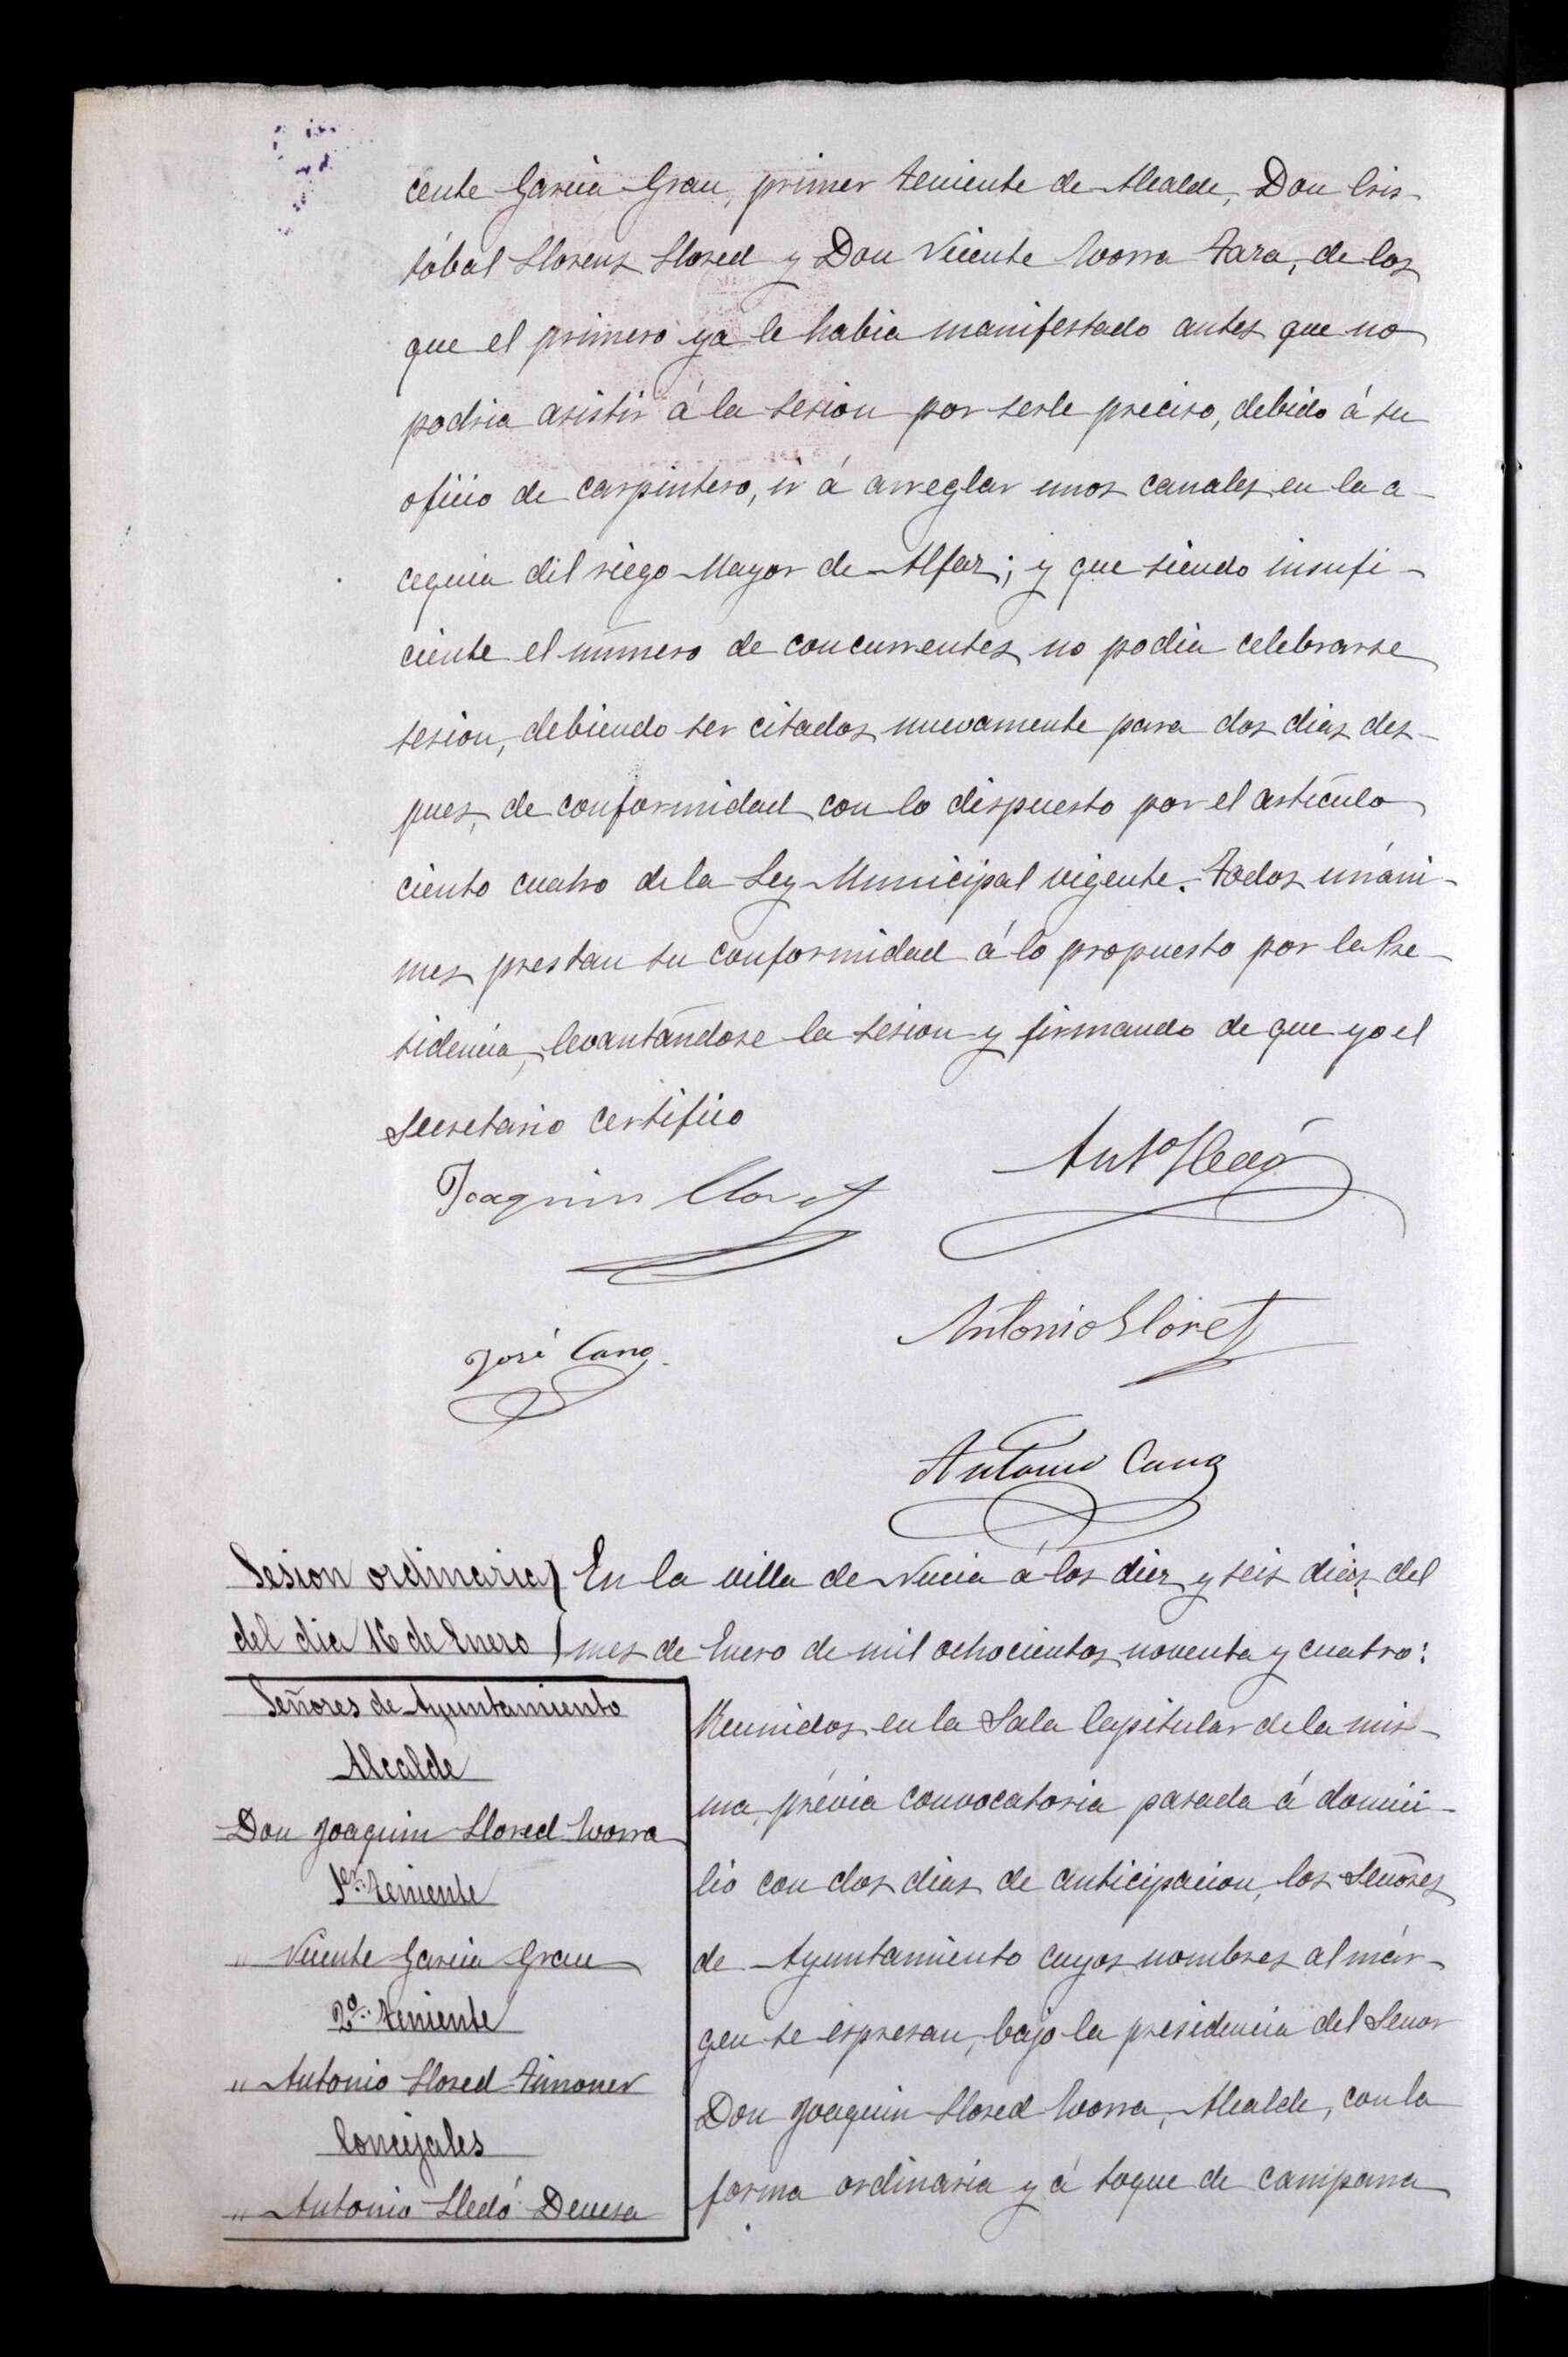 cente García Grau, primer teniente de Alcalde, Don Cris-
tóbal Llorens Llored y Don Vicente Ivorra Fara, de los
que el primero ya le habia manifestado antes que no
podria asistir á la sesion por serle preciso, debido á su
oficio de carpintero, ir á arreglar unos canales en la a-
cequia del riego Mayor de Alfaz; y que siendo insufi-
ciente el número de concurrentes no podia celebrarse
sesion, debiendo ser citados nuevamente para dos dias des-
pues, de conformidad con lo dispuesto por el artículo
ciento cuatro de la Ley Municipal vigente. Todos unáni-
mes prestan su conformidad á lo propuesto por la Pre-
sidencia, levantándose la sesion y firmando de que yo el
Secretario certifico
Joaquin Lloret
Antº Lledó
José Cano
Antonio Lloret
Antonio Cano
Sesion ordinaria
del dia 16 de Enero
Señores de Ayuntamiento
Alcalde
Don Joaquin Llored Ivorra
1er. teniente
" Vicente García Grau
2º. teniente
" Antonio Llored Timoner
Concejales
" Antonio Lledó Devesa
En la villa de Nucia á los diez y seis dias del
mes de Enero de mil ochocientos noventa y cuatro:
Reunidos en la Sala Capitular de la mis-
ma, prévia convocatoria pasada á domici-
lio con dos dias de anticipacion, los Señores
de Ayuntamiento cuyos nombres al már-
gen se espresan, bajo la presidencia del Señor
Don Joaquin Llored Ivorra, Alcalde, con la
forma ordinaria y á toque de campana